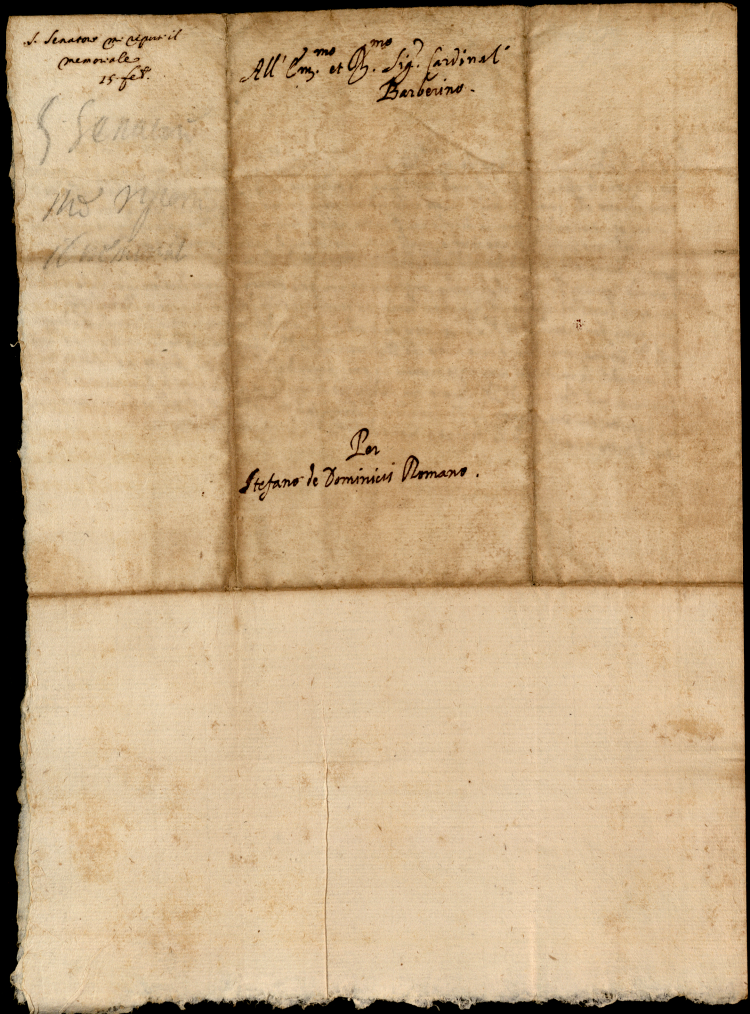 S. Senatore m reputi il
memoriale
15 feb.
S Senatore
me
il memorial
All' Em.mo et R.mo Sig.r Cardinal
Barberino.
Per
Stefano de Dominicis Romano.